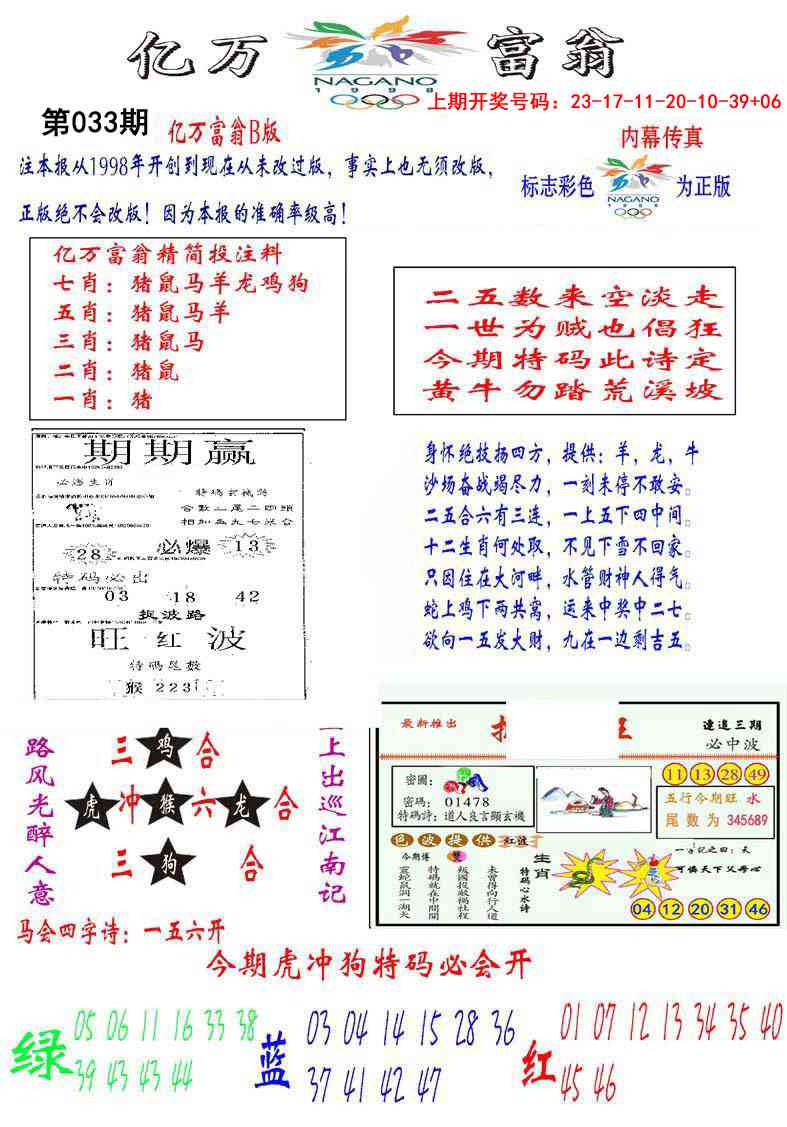 亿万富翁
NAGANO
1998
上期开奖号码：23-17-11-20-10-39+06
第033期
亿万富翁B版
内幕传真
注本报从1998年开创到现在从未改过版，事实上也无须改版，
正版绝不会改版！因为本报的准确率级高！
标志彩色
NAGANO
1998
为正版
亿万富翁精简投注料
七肖：猪鼠马羊龙鸡狗
五肖：猪鼠马羊
三肖：猪鼠马
二肖：猪鼠
一肖：猪
二五数来空淡走
一世为贼也倡狂
今期特码此诗定
黄牛勿踏荒溪坡
期期赢
必爆
28
13
特码必出
03 18 42
旺红波
猴 223
身怀绝技扬四方，提供：羊，龙，牛
沙场奋战竭尽力，一刻未停不敢安。
二五合六有三连，一上五下四中间。
十二生肖何处取，不见下雪不回家。
只因住在大河畔，水管财神人得气。
蛇上鸡下两共窝，运来中奖中二七。
欲向一五发大财，九在一边剩吉五。
路风光醉人意
三 鸡 合
虎 冲 猴 六 龙 合
三 狗 合
上出巡江南记
马会四字诗：一五六开
最新推出
連追三期
必中波
密圖：
密碼：01478
特碼詩：道人良言顯玄機
11 13 28 49
五行今期旺 水
尾数为 345689
色波提供 红波
今期傅 雙
靈蛇鼠洞一湖天
特碼就在中間開
叛國投敵禍社程
未曾得向行人道
特码心水诗
生肖
一字记之曰：天
可憐天下父母心
04 12 20 31 46
今期虎冲狗特码必会开
绿
05 06 11 16 33 38
39 43 43 44
蓝
03 04 14 15 28 36
37 41 42 47
红
01 07 12 13 34 35 40
45 46